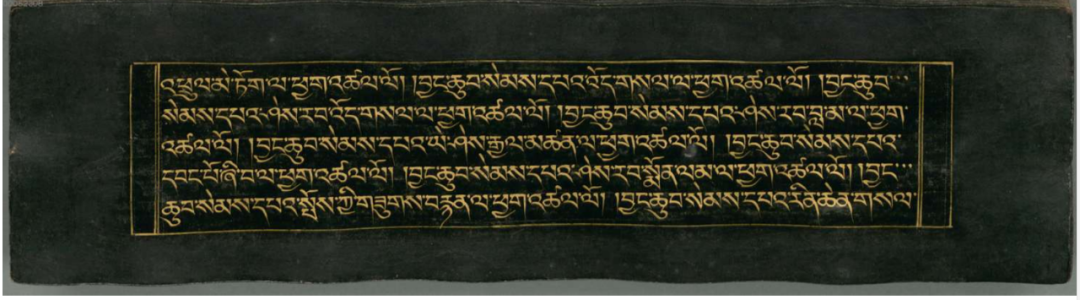 འཕྲུལ་མེ་ཏོག་ལ་ཕྱག་འཚལ་ལོ། །བྱང་ཆུབ་སེམས་དཔའ་འོད་གསལ་ལ་ཕྱག་འཚལ་ལོ། །བྱང་ཆུབ་
སེམས་དཔའ་ཤེས་རབ་འོད་གསལ་ལ་ཕྱག་འཚལ་ལོ། །བྱང་ཆུབ་སེམས་དཔའ་ཤེས་རབ་བླ་མ་ལ་ཕྱག་
འཚལ་ལོ། །བྱང་ཆུབ་སེམས་དཔའ་ཡེ་ཤེས་རྒྱལ་མཚན་ལ་ཕྱག་འཚལ་ལོ། །བྱང་ཆུབ་སེམས་དཔའ་
དབང་པོ་ཞི་བ་ལ་ཕྱག་འཚལ་ལོ། །བྱང་ཆུབ་སེམས་དཔའ་ཤེས་རབ་སྒྲོན་ལ་མ་ལ་ཕྱག་འཚལ་ལོ། །བྱང་
ཆུབ་སེམས་དཔའ་སྤོས་ཀྱི་གཟུགས་བརྙན་ལ་ཕྱག་འཚལ་ལོ། །བྱང་ཆུབ་སེམས་དཔའ་རིན་ཆེན་གསལ་